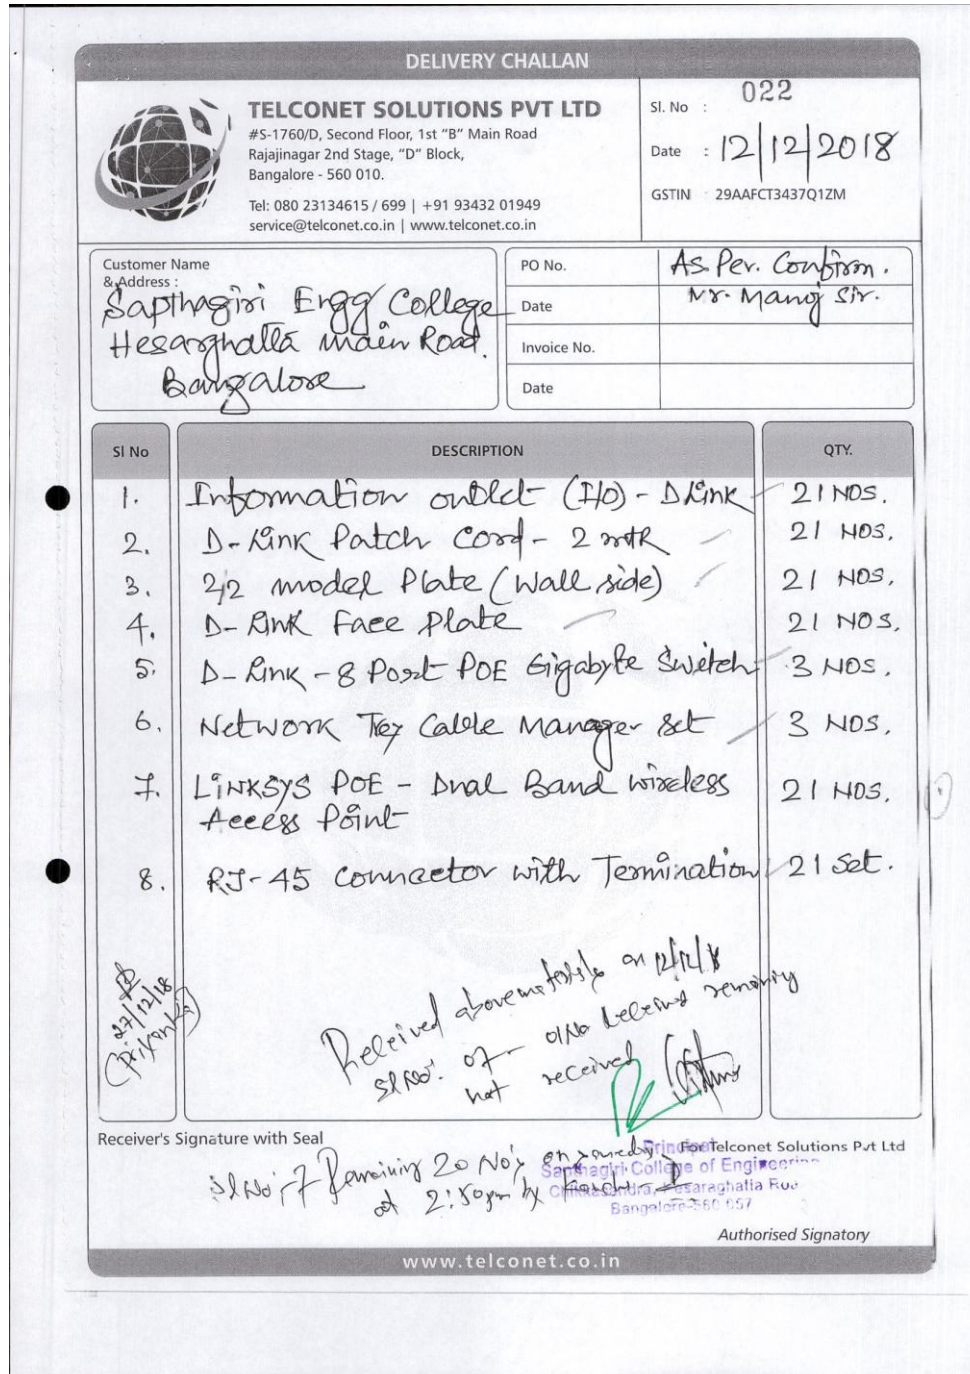 DELIVERY CHALLAN
TELCONET SOLUTIONS PVT LTD
#S-1760/D, Second Floor, 1st “B” Main Road
Rajajinagar 2nd Stage, “D” Block,
Bangalore - 560 010.
Tel: 080 23134615 / 699 | +91 93432 01949
service@telconet.co.in | www.telconet.co.in
Sl. No : 022
Date : 12/12/2018
GSTIN : 29AAFCT3437Q1ZM
Customer Name
& Address :
Sapthagiri Engg College
Hesarghatta main Road.
Bangalore
PO No. As. Per. Confirm.
Date Mr. Manoj Sir.
Invoice No.
Date
Sl No DESCRIPTION QTY.
1. Information outlet (I/O) - DLink 21 NOS.
2. D-Link Patch Cord - 2 mtR 21 NOS.
3. 2/2 model Plate (wall side) 21 NOS.
4. D-Link Face Plate 21 NOS.
5. D-Link - 8 Port POE Gigabyte Switch 3 NOS.
6. Network Trey Cable Manager Set 3 NOS.
7. LiNKSYS POE - Dual Band wireless 21 NOS.
Access Point
8. RJ-45 Connector with Termination 21 Set.
Received above materials on 12/12/18
Sl No. 07 - 01No received remaining
not received
27/12/18
(Priyanka)
Receiver's Signature with Seal
For Telconet Solutions Pvt Ltd
Sl No:-7 Remaining 20 No's
at 2:50pm by
Principal
Sapthagiri College of Engineering
Chikkasandra, Hesaraghatta Road
Bangalore-560 057
Authorised Signatory
www.telconet.co.in